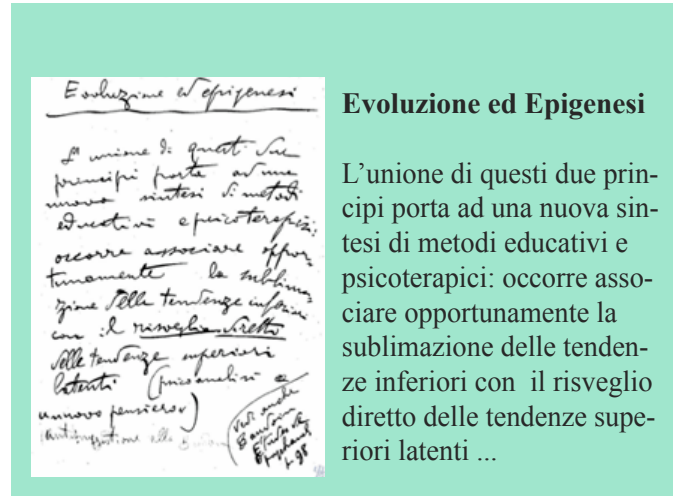 Evoluzione ed epigenesi
L'unione di questi due
principi porta ad una
nuova sintesi di metodi
educativi e psicoterapici:
occorre associare oppor-
tunamente la sublima-
zione delle tendenze inferiori
con il risveglio diretto
delle tendenze superiori
latenti (psicoanalisi e
nuovo pensiero)
vedi anche
Baudouin
p. 98
Evoluzione ed Epigenesi
L'unione di questi due prin-
cipi porta ad una nuova sin-
tesi di metodi educativi e
psicoterapici: occorre asso-
ciare opportunamente la
sublimazione delle tenden-
ze inferiori con il risveglio
diretto delle tendenze supe-
riori latenti ...